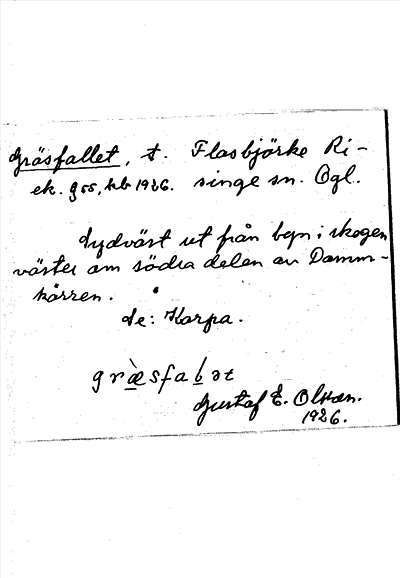 Gräsfallet, t. Flasbjörke Ri-
ek. gss, kb 1926. singe sn. Ögl.
Sydväst ut från byn i skogen
väster om södra delen av Damm-
kärren.
Se: Karpa.
græ̀sfaḷət
Gustaf E. Olsson.
1926.